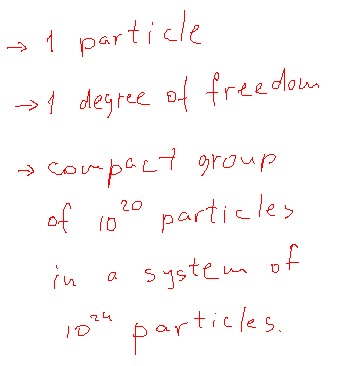 → 1 particle
→ 1 degree of freedom
→ compact group
of 10²⁰ particles
in a system of
10²⁴ particles.